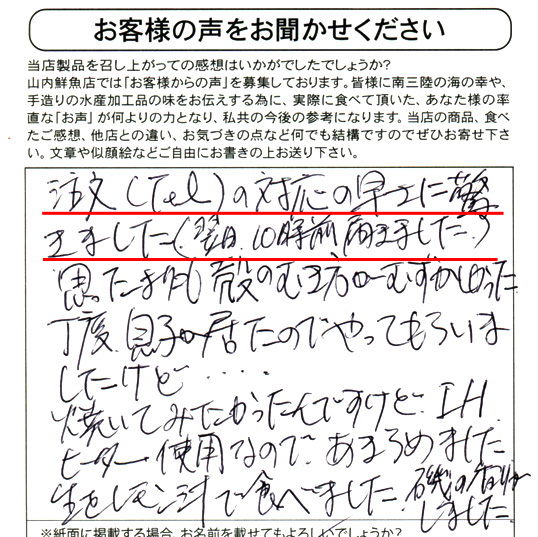 お客様の声をお聞かせください
当店製品を召し上がっての感想はいかがでしたでしょうか?
山内鮮魚店では「お客様からの声」を募集しております。皆様に南三陸の海の幸や、
手造りの水産加工品の味をお伝えする為に、実際に食べて頂いた、あなた様の率
直な「お声」が何よりの力となり、私共の今後の参考になります。当店の商品、食べ
たご感想、他店との違い、お気づきの点など何でも結構ですのでぜひお寄せ下さ
い。文章や似顔絵などご自由にお書きの上お送り下さい。
注文(Tel)の対応の早さに驚
きました(翌日、10時前届きました。)
思ったより 殻のむき方がむずかしかった
丁度、息子が居たのでやってもらいま
したけど・・・・
焼いてみたかったんですけど、IH
ヒーター使用なので、あきらめました
生をレモン汁で食べました。磯の香り
しました
※紙面に掲載する場合、お名前を載せてもよろしいでしょうか?